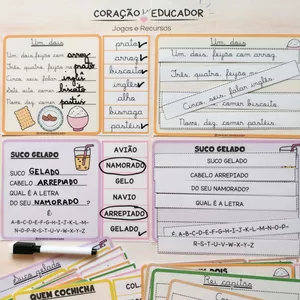 CORAÇÃO EDUCADOR
Jogos e Recursos
Um dois
Um, dois, feijão com arroz.
Três, quatro, feijão no prato.
Cinco, seis, falar inglês
Sete, oito, comer biscoito
Nove, dez, comer pastéis
prato
arroz
biscoito
inglês
alho
bisnaga
pastéis
Um dois
Um, dois, feijão com arroz.
Três, quatro, feijão no prato.
Cinco, seis, falar inglês.
comer biscoito.
Nove, dez, comer pastéis.
SUCO GELADO
SUCO GELADO
CABELO ARREPIADO
QUAL É A LETRA
DO SEU NAMORADO?
É:
A-B-C-D-E-F-G-H-I-J-K-L-M-
N-O-P-Q-R-S-T-U-V-W-X-Y-Z
AVIÃO
NAMORADO
GELO
NAVIO
ARREPIADO
GELADO
SUCO GELADO
SUCO GELADO
CABELO ARREPIADO
QUAL É A LETRA
DO SEU NAMORADO?
A-B-C-D-E-F-G-H-I-J-K-L-M-N-O-P-Q-
R-S-T-U-V-W-X-Y-Z
Suco gelado
QUEM COCHICHA
DOIS
Boi capitão